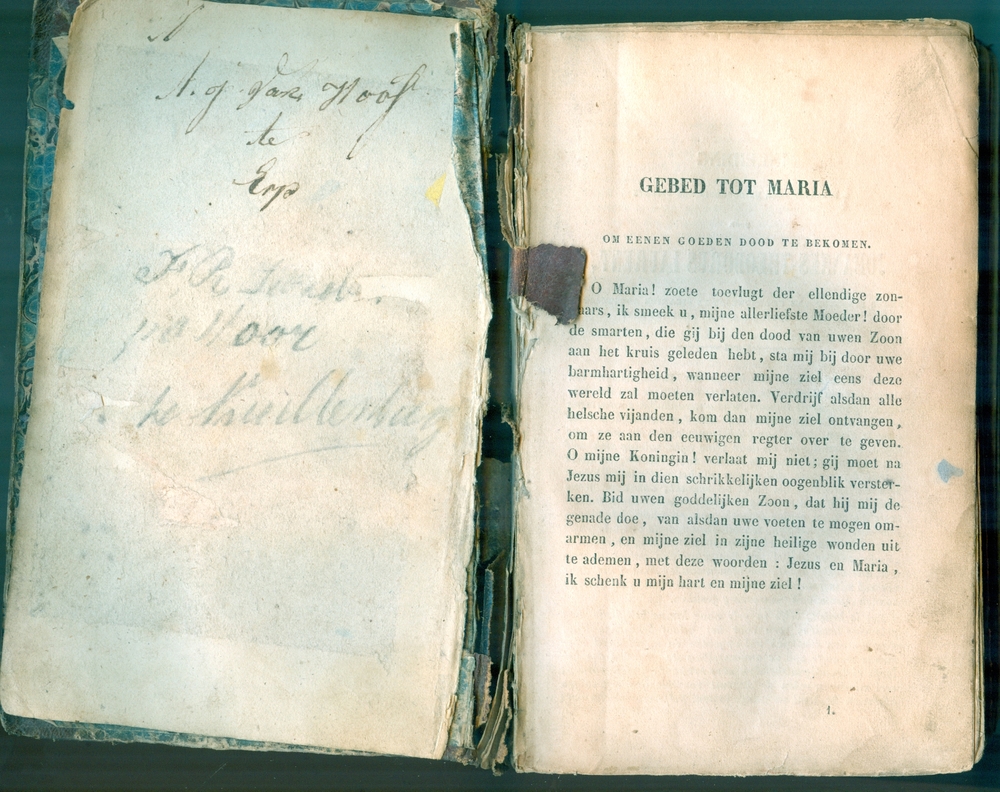 A. J. Van Hoof
te
Erp
te
GEBED TOT MARIA
OM EENEN GOEDEN DOOD TE BEKOMEN.
O Maria! zoete toevlugt der ellendige zon-
aars, ik smeek u, mijne allerliefste Moeder! door
de smarten, die gij bij den dood van uwen Zoon
aan het kruis geleden hebt, sta mij bij door uwe
barmhartigheid, wanneer mijne ziel eens deze
wereld zal moeten verlaten. Verdrijf alsdan alle
helsche vijanden, kom dan mijne ziel ontvangen,
om ze aan den eeuwigen regter over te geven.
O mijne Koningin! verlaat mij niet; gij moet na
Jezus mij in dien schrikkelijken oogenblik verster-
ken. Bid uwen goddelijken Zoon, dat hij mij de
genade doe, van alsdan uwe voeten te mogen om-
armen, en mijne ziel in zijne heilige wonden uit
te ademen, met deze woorden : Jezus en Maria,
ik schenk u mijn hart en mijne ziel!
1.